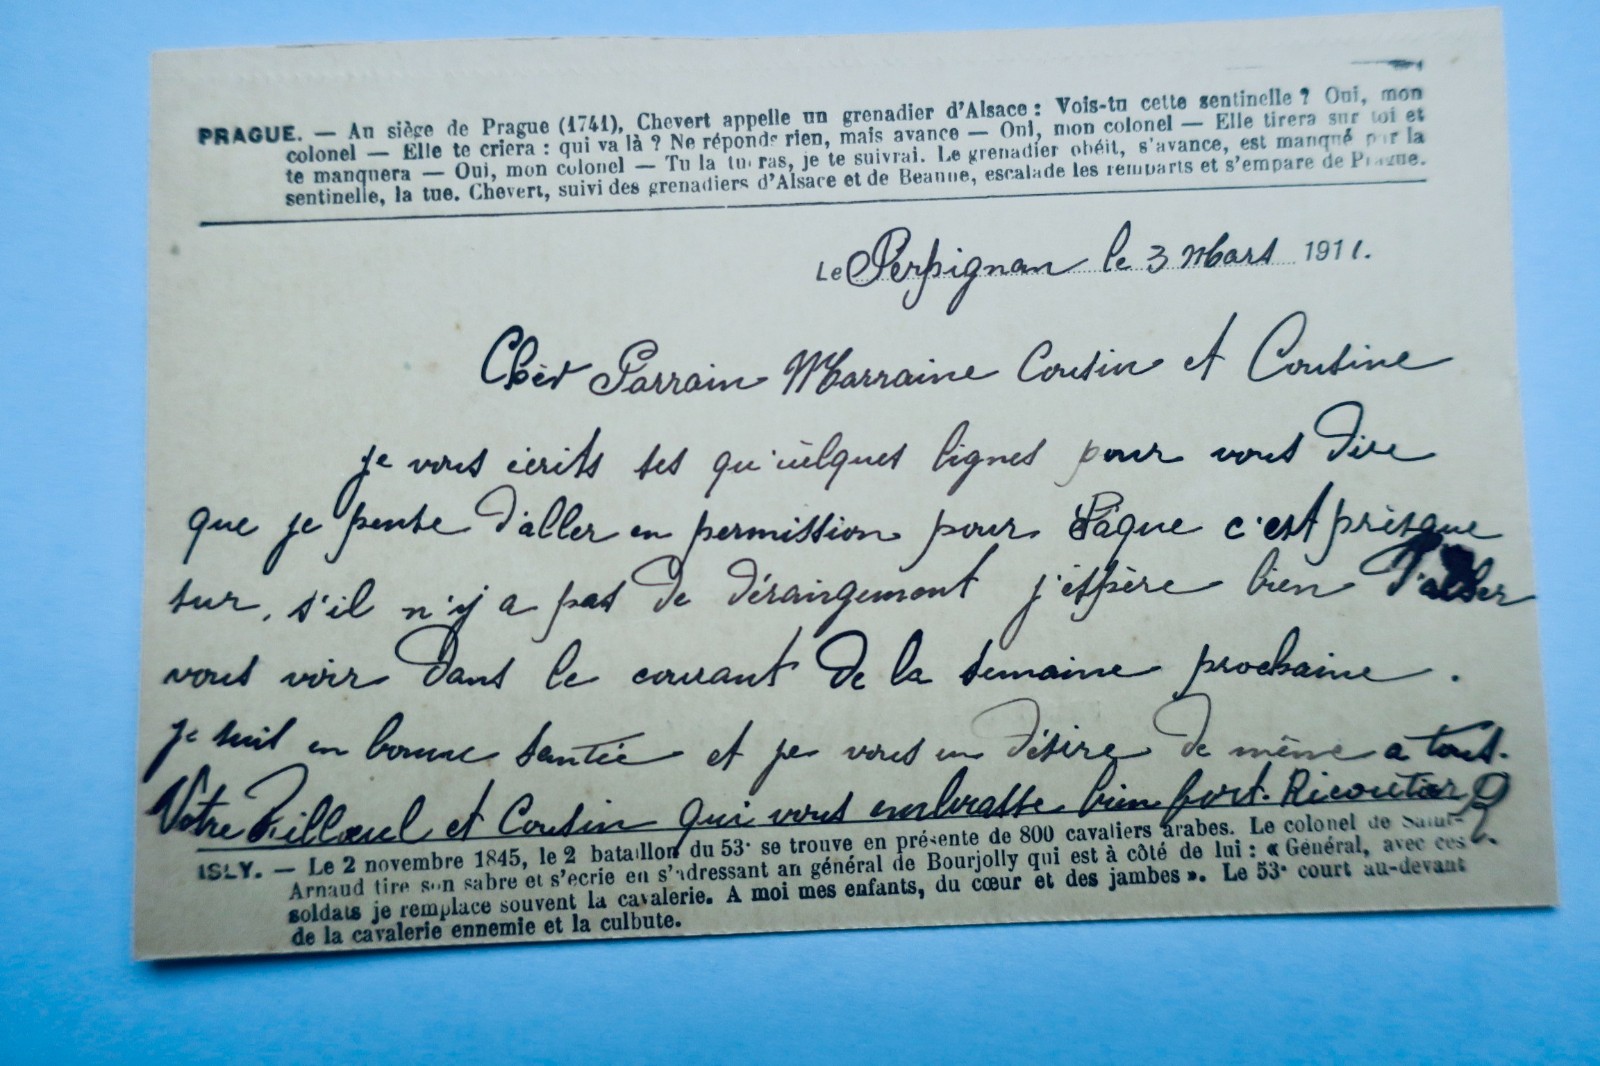 PRAGUE. — Au siège de Prague (1741), Chevert appelle un grenadier d'Alsace : Vois-tu cette sentinelle ? Oui, mon
colonel — Elle te criera : qui va là ? Ne réponds rien, mais avance — Oui, mon colonel — Elle tirera sur toi et
te manquera — Oui, mon colonel — Tu la tueras, je te suivrai. Le grenadier obéit, s'avance, est manqué par la
sentinelle, la tue. Chevert, suivi des grenadiers d'Alsace et de Beaune, escalade les remparts et s'empare de Prague.
Le Perpignan le 3 Mars 1911.
Chèr Parrain Marraine Cousin et Cousine
je vous écrits ses qu'uélques lignes pour vous dire
que je pense d'aller en permission pour Pâque c'est prèsque
sur, s'il n'y a pas de déraingement j'éspère bien d'aller
vous voir dans le courant de la semaine prochaine.
je suit en bonne santée et je vous en désire de même a tous.
Votre Filleul et Cousin qui vous embrasse bien fort.
ISLY. — Le 2 novembre 1845, le 2 bataillon du 53e se trouve en présente de 800 cavaliers arabes. Le colonel de Saint-
Arnaud tire son sabre et s'ecrie en s'adressant an général de Bourjolly qui est à côté de lui : « Général, avec ces
soldats je remplace souvent la cavalerie. A moi mes enfants, du cœur et des jambes ». Le 53e court au-devant
de la cavalerie ennemie et la culbute.